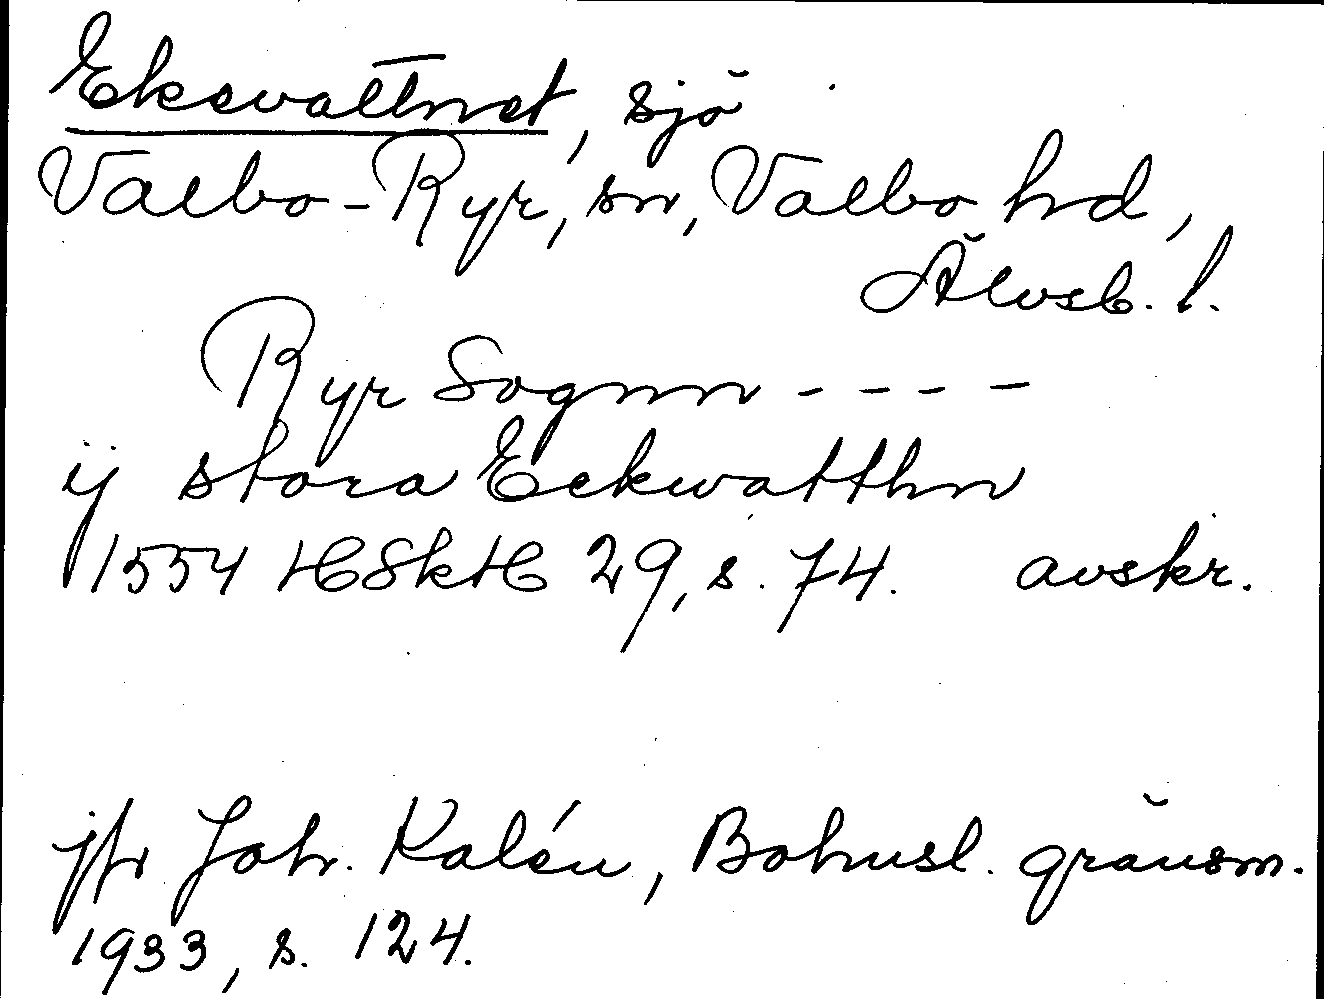 Eksvattnet, sjö
Valbo-Ryr, sn, Valbo hd,
Älvsb. l.
Ryr Sognn - - - -
ij stora Eckwatthn
1554 HSkH 29, s. 74. avskr.
jfr Joh. Kalén, Bohusl. gränsm.
1933, s. 124.